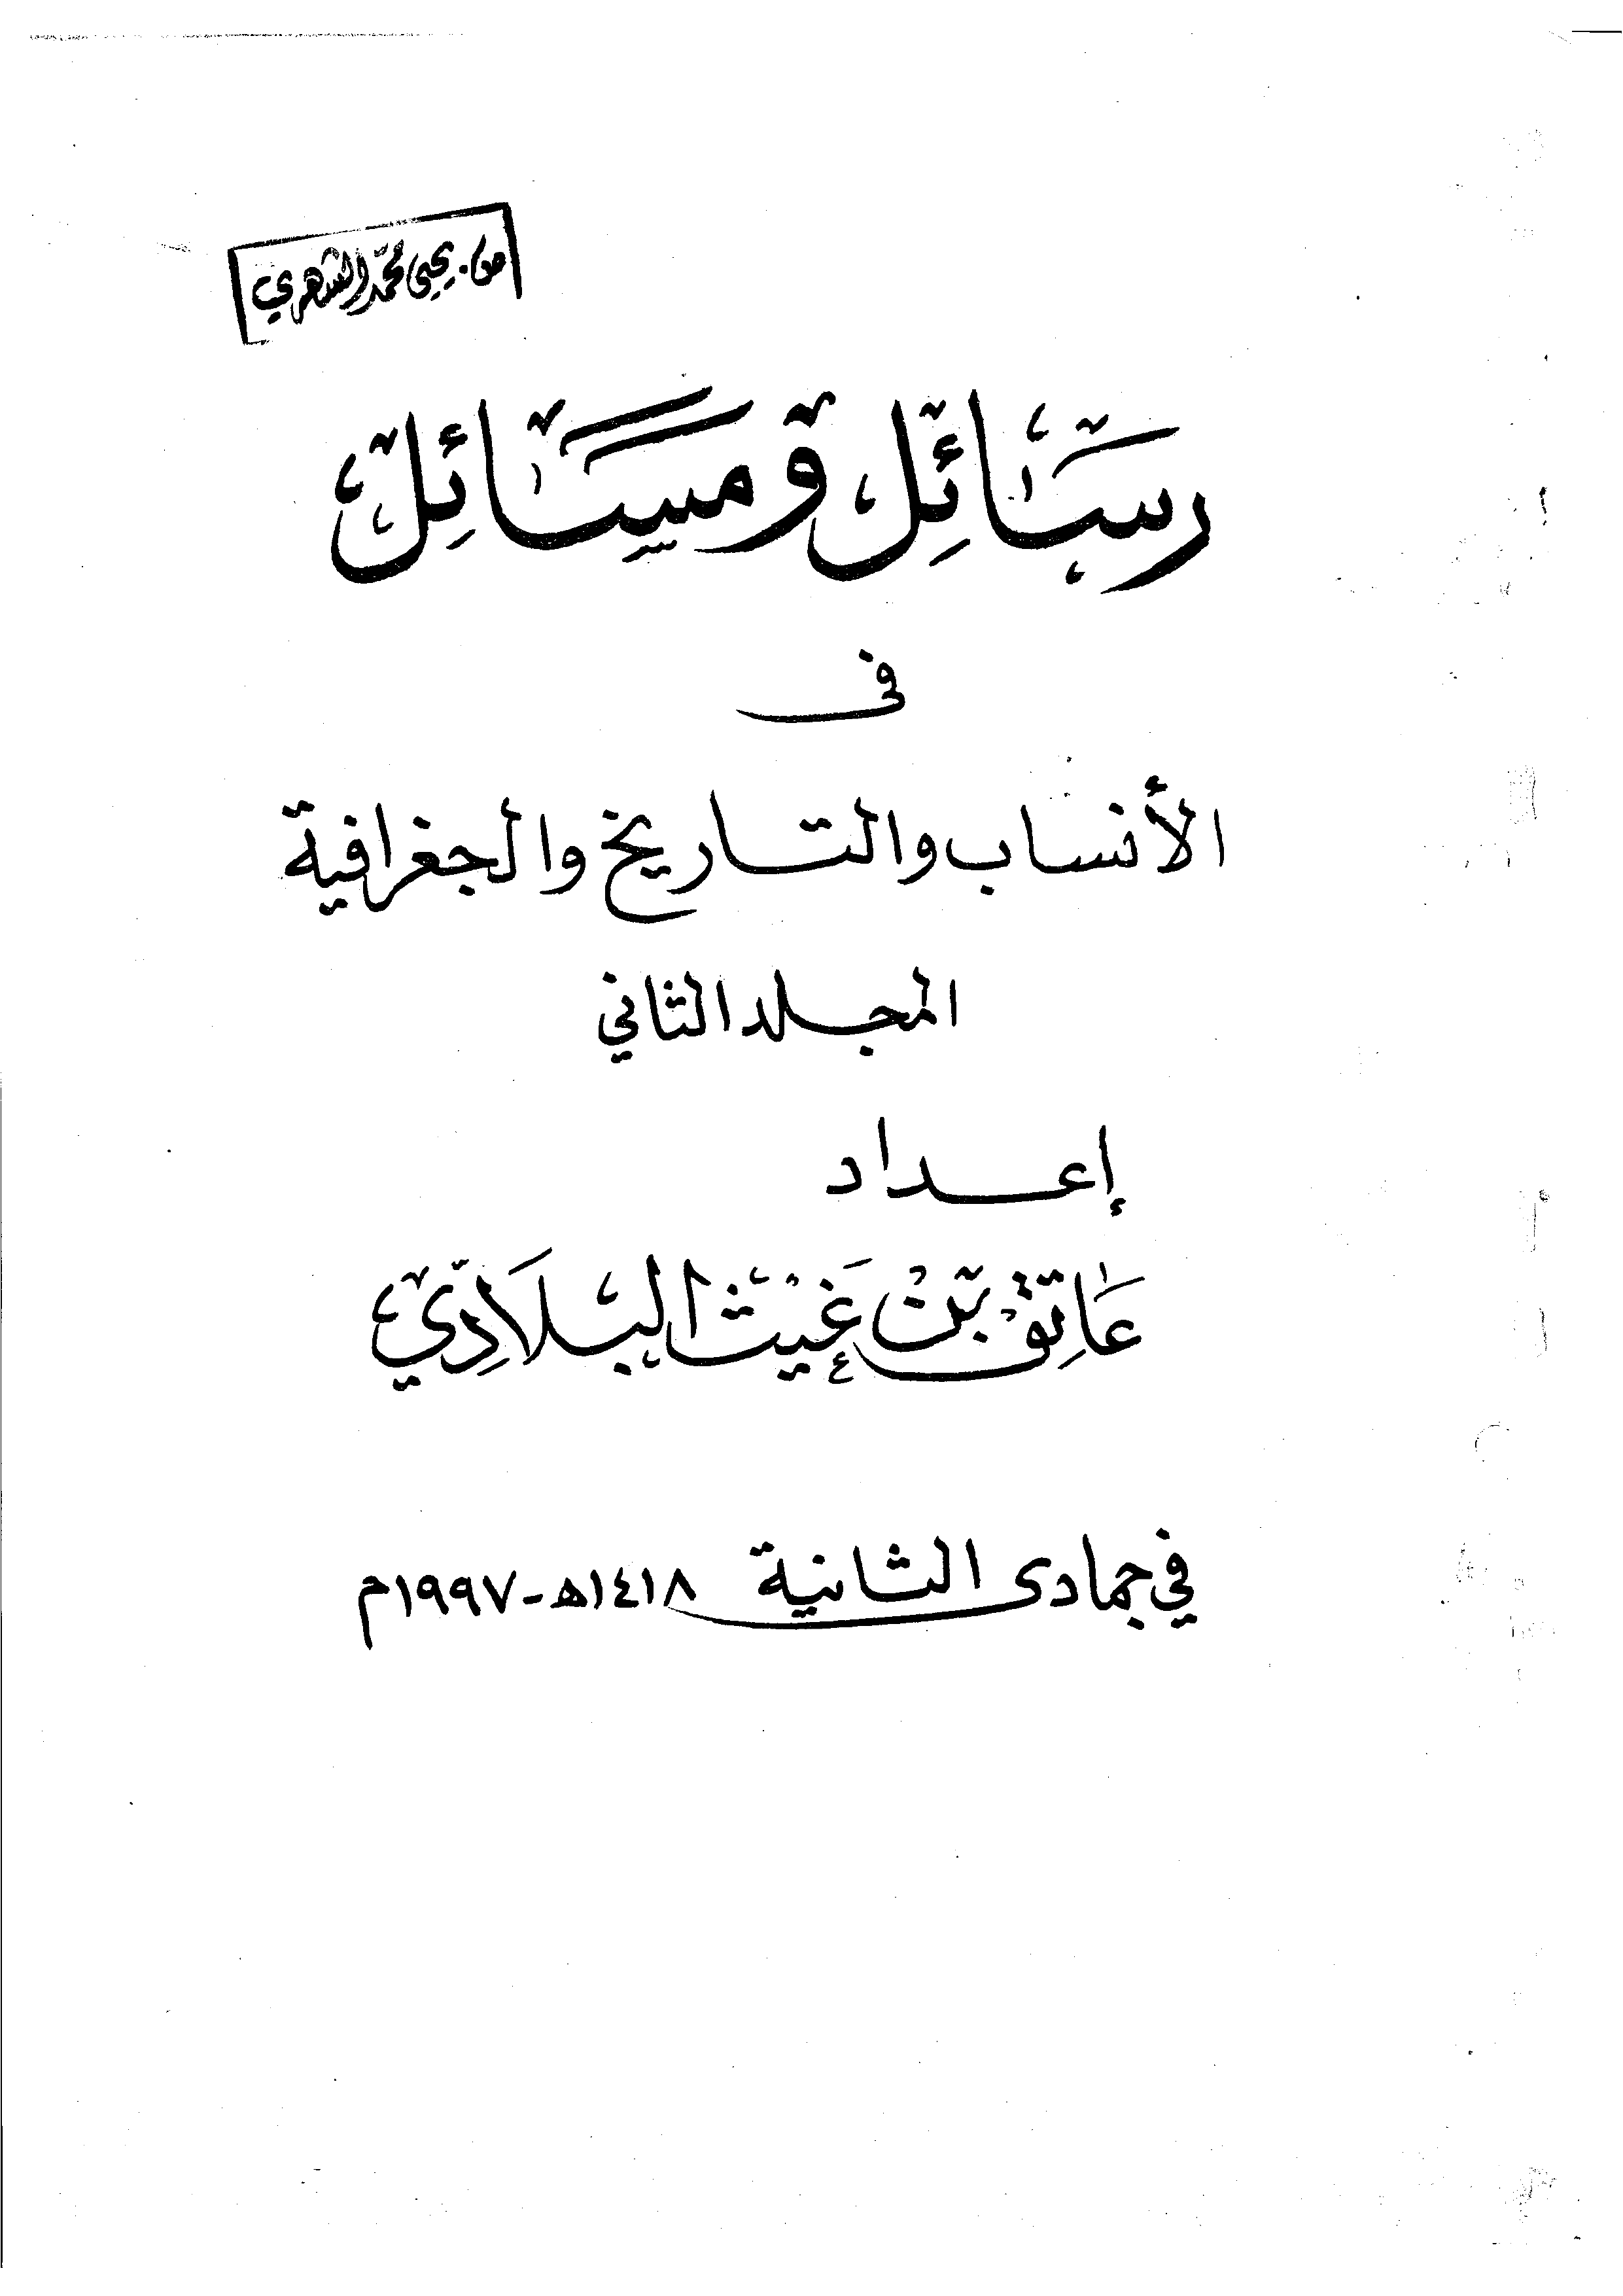 يحيى محمد الشهري
رَسَائِل ومَسَائِل
فى
الأنساب والتاريخ والجغرافية
المجلد الثاني
إعداد
عَاتِق بْن غَيْث البِلَادِيّ
في جمادى الثانية ١٤١٨هـ - ١٩٩٧م